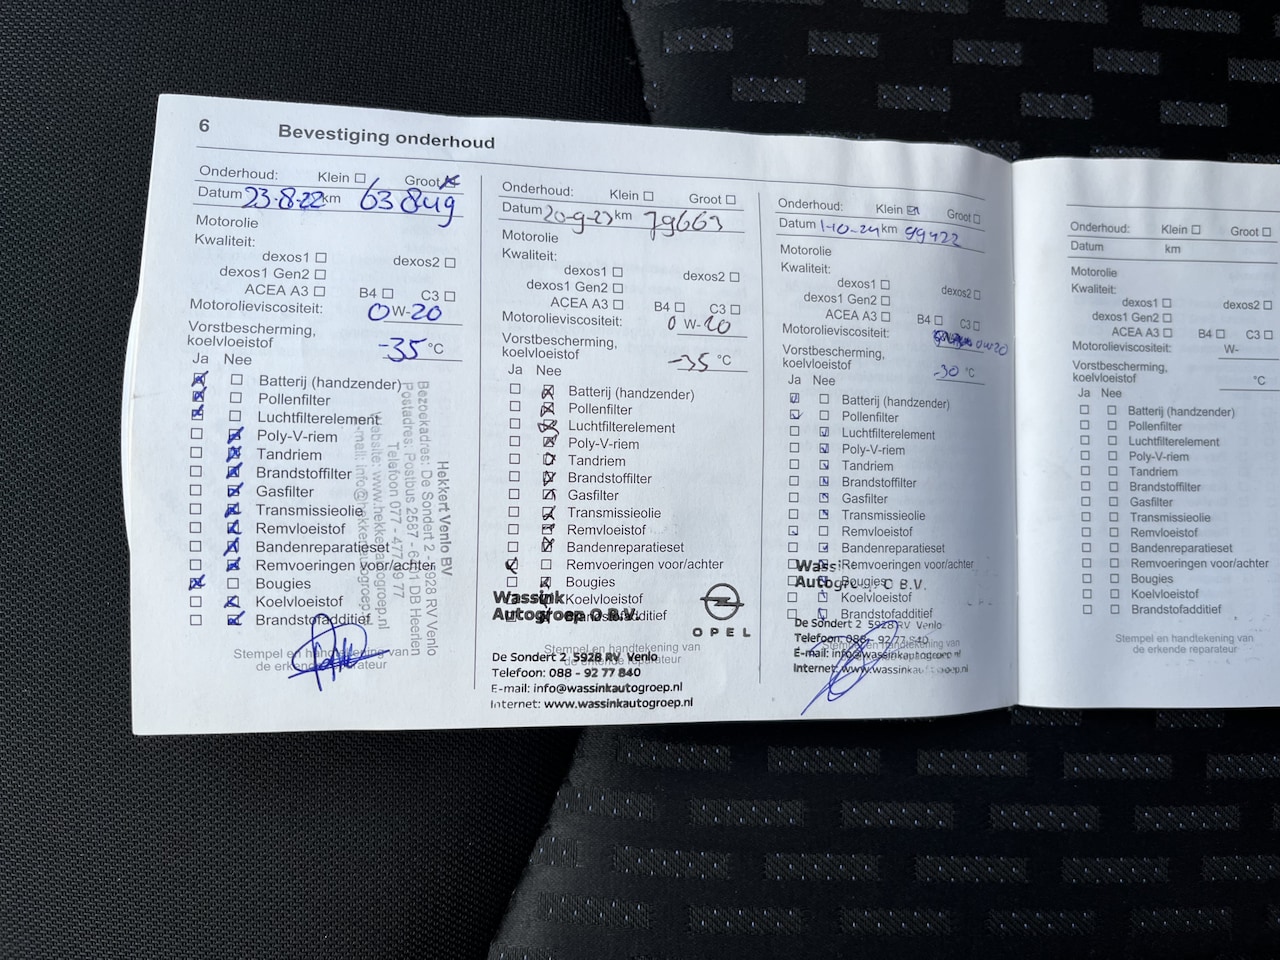 6 Bevestiging onderhoud
Onderhoud: Klein Groot
Datum 23-8-22 km 63849
Motorolie
Kwaliteit:
dexos1 dexos2
dexos1 Gen2
ACEA A3 B4 C3
Motorolieviscositeit: 0W-20
Vorstbescherming,
koelvloeistof -35 °C
Ja Nee
Batterij (handzender)
Pollenfilter
Luchtfilterelement
Poly-V-riem
Tandriem
Brandstoffilter
Gasfilter
Transmissieolie
Remvloeistof
Bandenreparatieset
Remvoeringen voor/achter
Bougies
Koelvloeistof
Brandstofadditief
Stempel en handtekening van
de erkende reparateur
Hekkert Venlo BV
Bezoekadres: De Sondert 2 - 5928 RV Venlo
Postadres: Postbus 2587 - 6401 DB Heerlen
Telefoon 077 -
Website: www.hekkertautogroep.nl
E-mail: info@hekkertautogroep.nl
Onderhoud: Klein Groot
Datum 20-9-23 km 79663
Motorolie
Kwaliteit:
dexos1 dexos2
dexos1 Gen2
ACEA A3 B4 C3
Motorolieviscositeit: 0 W-20
Vorstbescherming,
koelvloeistof -35 °C
Ja Nee
Batterij (handzender)
Pollenfilter
Luchtfilterelement
Poly-V-riem
Tandriem
Brandstoffilter
Gasfilter
Transmissieolie
Remvloeistof
Bandenreparatieset
Remvoeringen voor/achter
Bougies
Koelvloeistof
Brandstofadditief
Stempel en handtekening van
de erkende reparateur
Wassink
Autogroep O B.V.
OPEL
De Sondert 2 5928 RV Venlo
Telefoon: 088 - 92 77 840
E-mail: info@wassinkautogroep.nl
Internet: www.wassinkautogroep.nl
Onderhoud: Klein Groot
Datum 1-10-24 km 99422
Motorolie
Kwaliteit:
dexos1 dexos2
dexos1 Gen2
ACEA A3 B4 C3
Motorolieviscositeit: 0W20
Vorstbescherming,
koelvloeistof -30 °C
Ja Nee
Batterij (handzender)
Pollenfilter
Luchtfilterelement
Poly-V-riem
Tandriem
Brandstoffilter
Gasfilter
Transmissieolie
Remvloeistof
Bandenreparatieset
Remvoeringen voor/achter
Bougies
Koelvloeistof
Brandstofadditief
Stempel en handtekening van
de erkende reparateur
De Sondert 2 5928 RV Venlo
Telefoon: 088 - 92 77 840
E-mail: info@wassinkautogroep.nl
Internet: www.wassinkautogroep.nl
Onderhoud: Klein Groot
Datum km
Motorolie
Kwaliteit:
dexos1 dexos2
dexos1 Gen2
ACEA A3 B4 C3
Motorolieviscositeit: W-
Vorstbescherming,
koelvloeistof °C
Ja Nee
Batterij (handzender)
Pollenfilter
Luchtfilterelement
Poly-V-riem
Tandriem
Brandstoffilter
Gasfilter
Transmissieolie
Remvloeistof
Bandenreparatieset
Remvoeringen voor/achter
Bougies
Koelvloeistof
Brandstofadditief
Stempel en handtekening van
de erkende reparateur